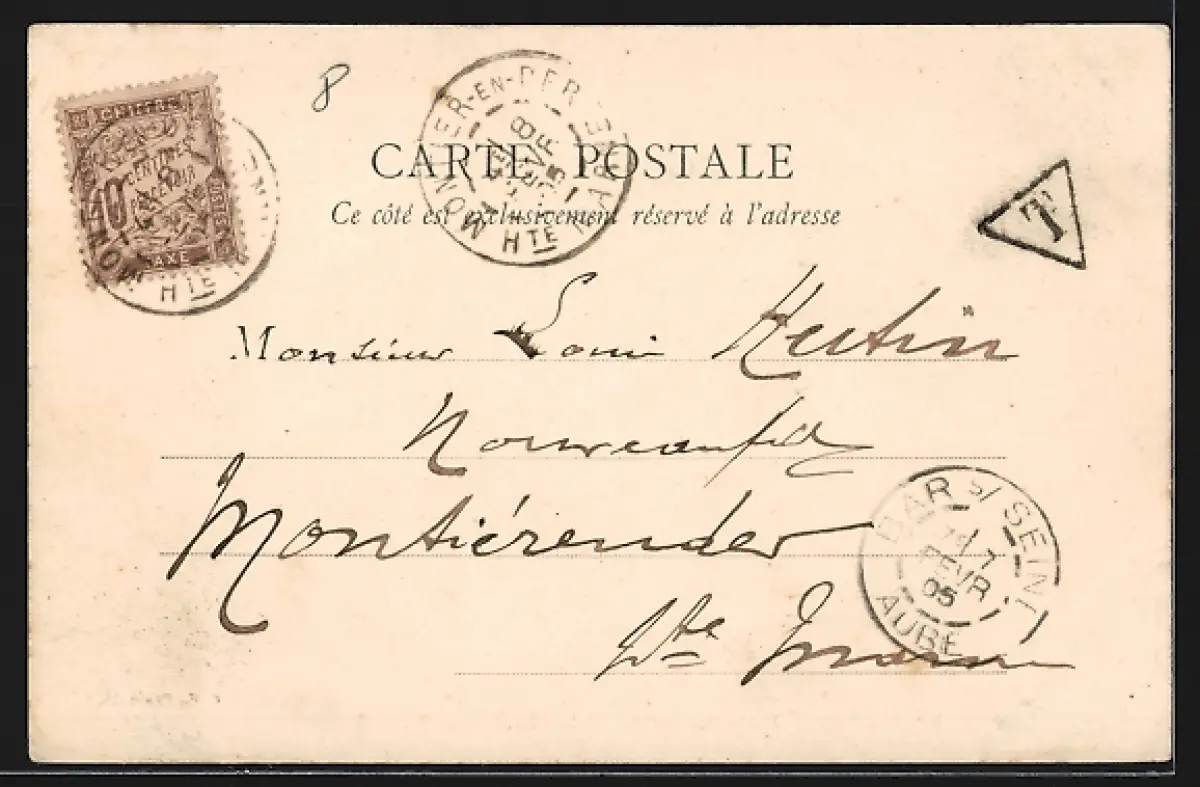 8
CHIFFRE
CENTIMES
À PERCEVOIR
10
TAXE
MONTIER-EN-DER
8
FEVR
05
HTE MARNE
HTE
CARTE POSTALE
Ce côté est exclusivement réservé à l'adresse
T
Monsieur Louis
Montiérender
Hte Marne
BAR S/ SEINE
7
FEVR
05
AUBE